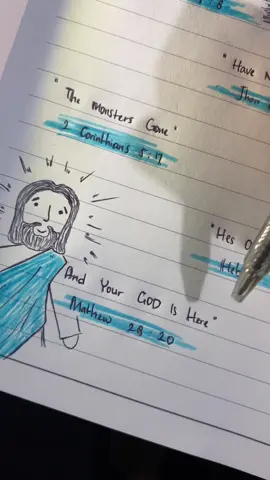 : 8
" Have N
Jhon
" The Monsters Gone "
2 Corinthians 5:17
" Hes O
Heb
And Your GOD Is Here"
Mathew 28:20